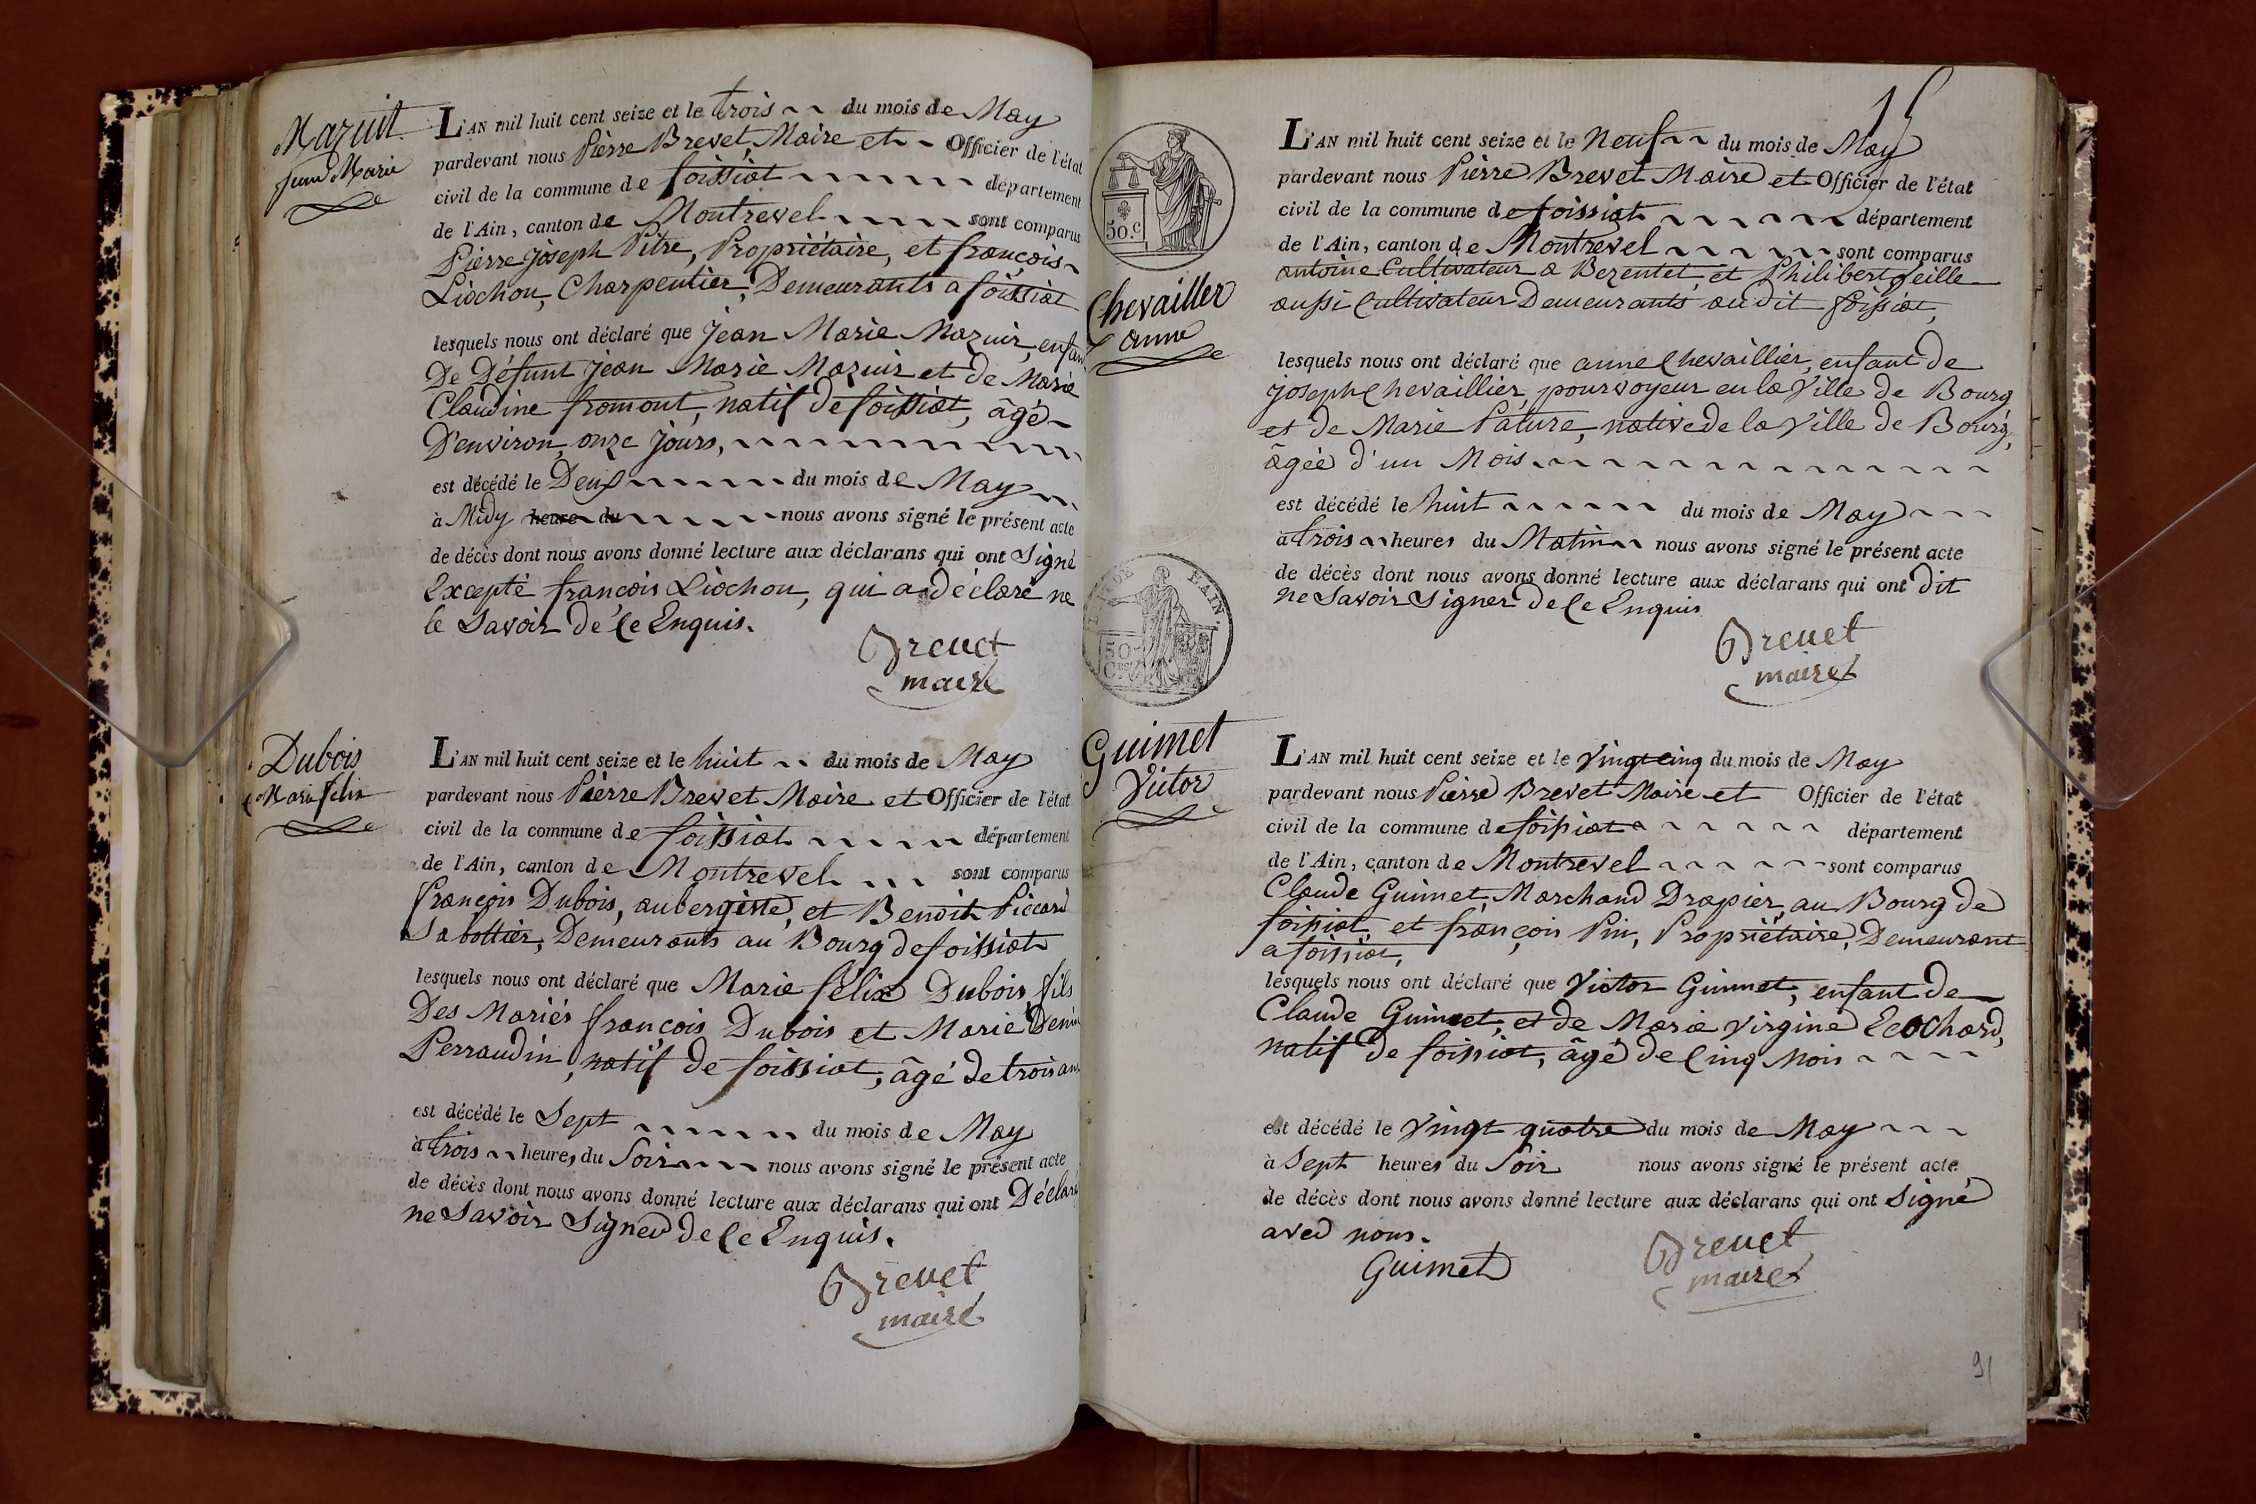 Mazuit
Jean Marie
L'AN mil huit cent seize et le trois du mois de May
pardevant nous Pierre Brevet Maire et Officier de l'état
civil de la commune de foissiat département
de l'Ain, canton de Montrevel sont comparus
Pierre Joseph Pitre, Propriétaire, et françois
Liochon, Charpentier, Demeurants a foissiat
lesquels nous ont déclaré que Jean Marie Mazuir, enfant
De Défunt Jean Marie Mazuir et de Marie
Claudine fromont, natif de foissiat, âgé
D'environ onze jours,
est décédé le Deux du mois de May
à Midy heure du nous avons signé le présent acte
de décès dont nous avons donné lecture aux déclarans qui ont Signé
Excepté françois Liochon, qui a déclaré ne
le Savoir de Ce Enquis.
Brevet
maire
Dubois
Marie felix
L'AN mil huit cent seize et le huit du mois de May
pardevant nous Pierre Brevet Maire et Officier de l'état
civil de la commune de foissiat département
de l'Ain, canton de Montrevel sont comparus
françois Dubois, aubergiste, et Benoit Piccard
Sabottier, Demeurants au Bourg de foissiat
lesquels nous ont déclaré que Marie félix Dubois, fils
Des Mariés françois Dubois et Marie
Perraudin, natif de foissiat, âgé de trois ans
est décédé le Sept du mois de May
à trois heures du Soir nous avons signé le présent acte
de décès dont nous avons donné lecture aux déclarans qui ont Déclaré
ne Savoir Signer de Ce Enquis.
Brevet
maire
15
50.c
Chevaillier
anne
L'AN mil huit cent seize et le Neuf du mois de May
pardevant nous Pierre Brevet Maire et Officier de l'état
civil de la commune de foissiat département
de l'Ain, canton de Montrevel sont comparus
antoine Cultivateur a Bezentet, et Philibert feille
aussi Cultivateur Demeurants au dit foissiat,
lesquels nous ont déclaré que anne Chevaillier, enfant de
joseph Chevaillier, pourvoyeur en la Ville de Bourg
et de Marie Pature, native de la Ville de Bourg,
âgée d'un Mois
est décédé le huit du mois de May
à trois heures du Matin nous avons signé le présent acte
de décès dont nous avons donné lecture aux déclarans qui ont dit
ne Savoir Signer de Ce Enquis
Brevet
maire
50
Guimet
Victor
L'AN mil huit cent seize et le Vingt cinq du mois de May
pardevant nous Pierre Brevet Maire et Officier de l'état
civil de la commune de foissiat département
de l'Ain, canton de Montrevel sont comparus
Claude Guimet, Marchand Drapier, au Bourg de
foissiat, et françois Pin, Propriétaire, Demeurant
a foissiat,
lesquels nous ont déclaré que Victor Guimet, enfant de
Claude Guimet, et de Marie Virginé Ecochard,
natif de foissiat, âgé de Cinq Mois
est décédé le Vingt quatre du mois de May
à Sept heures du Soir nous avons signé le présent acte
de décès dont nous avons donné lecture aux déclarans qui ont Signé
avec nous.
Guimet
Brevet
maire
91